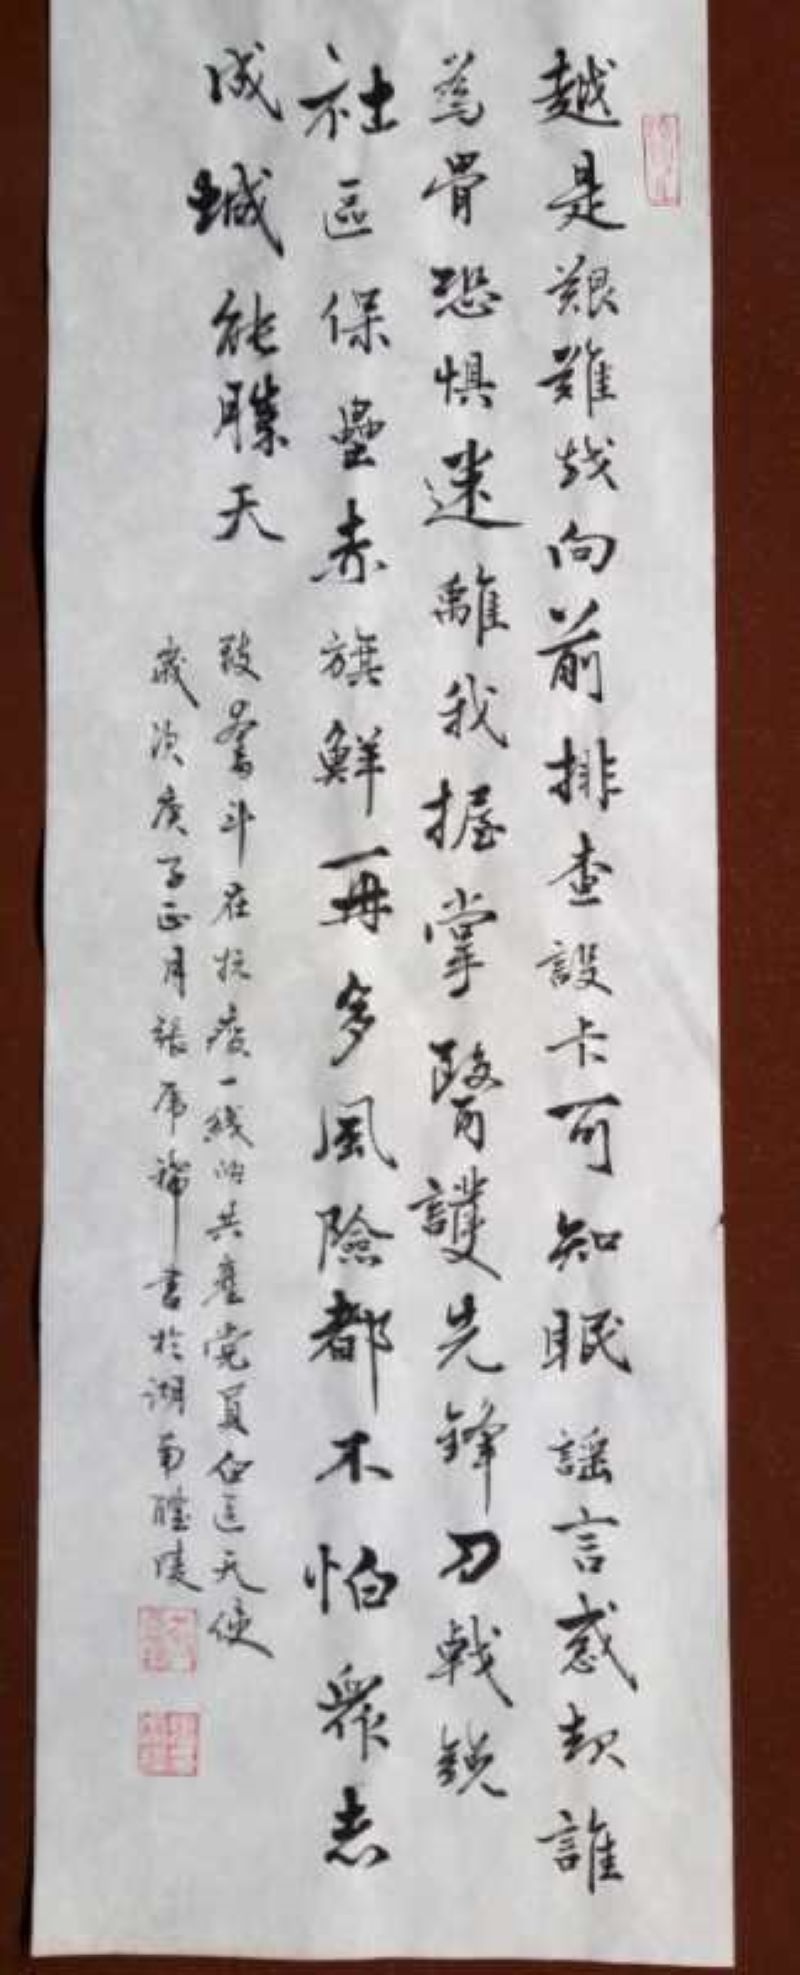 越是艱難越向前排查設卡可知眠謠言惑起誰
為骨恐懼迷離我握掌醫護先鋒刀戟銳
社區保壘赤旗鮮再多風險都不怕眾志
成城能勝天
致奮斗在抗疫一线的共產党員白衣天使
歲次庚子正月張席瑞書於湖南醴陵